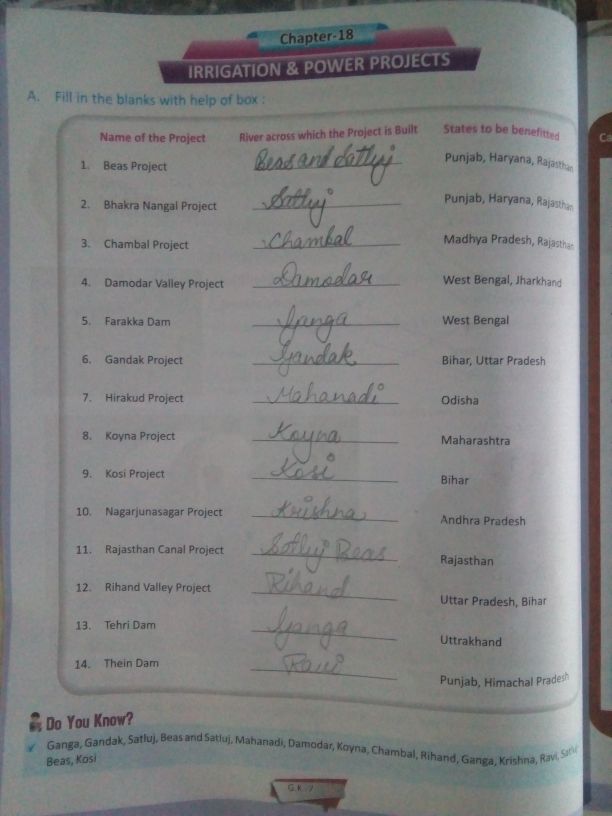 Chapter-18
IRRIGATION & POWER PROJECTS
A. Fill in the blanks with help of box :
Name of the Project River across which the Project is Built States to be benefitted
1. Beas Project Beas and Satluj Punjab, Haryana, Rajasthan
2. Bhakra Nangal Project Satluj Punjab, Haryana, Rajasthan
3. Chambal Project Chambal Madhya Pradesh, Rajasthan
4. Damodar Valley Project Damodar West Bengal, Jharkhand
5. Farakka Dam Ganga West Bengal
6. Gandak Project Gandak Bihar, Uttar Pradesh
7. Hirakud Project Mahanadi Odisha
8. Koyna Project Koyna Maharashtra
9. Kosi Project Kosi Bihar
10. Nagarjunasagar Project Krishna Andhra Pradesh
11. Rajasthan Canal Project Satluj Beas Rajasthan
12. Rihand Valley Project Rihand Uttar Pradesh, Bihar
13. Tehri Dam Ganga Uttrakhand
14. Thein Dam Ravi Punjab, Himachal Pradesh
Do You Know?
Ganga, Gandak, Satluj, Beas and Satluj, Mahanadi, Damodar, Koyna, Chambal, Rihand, Ganga, Krishna, Ravi, Satluj
Beas, Kosi
G.K.-7